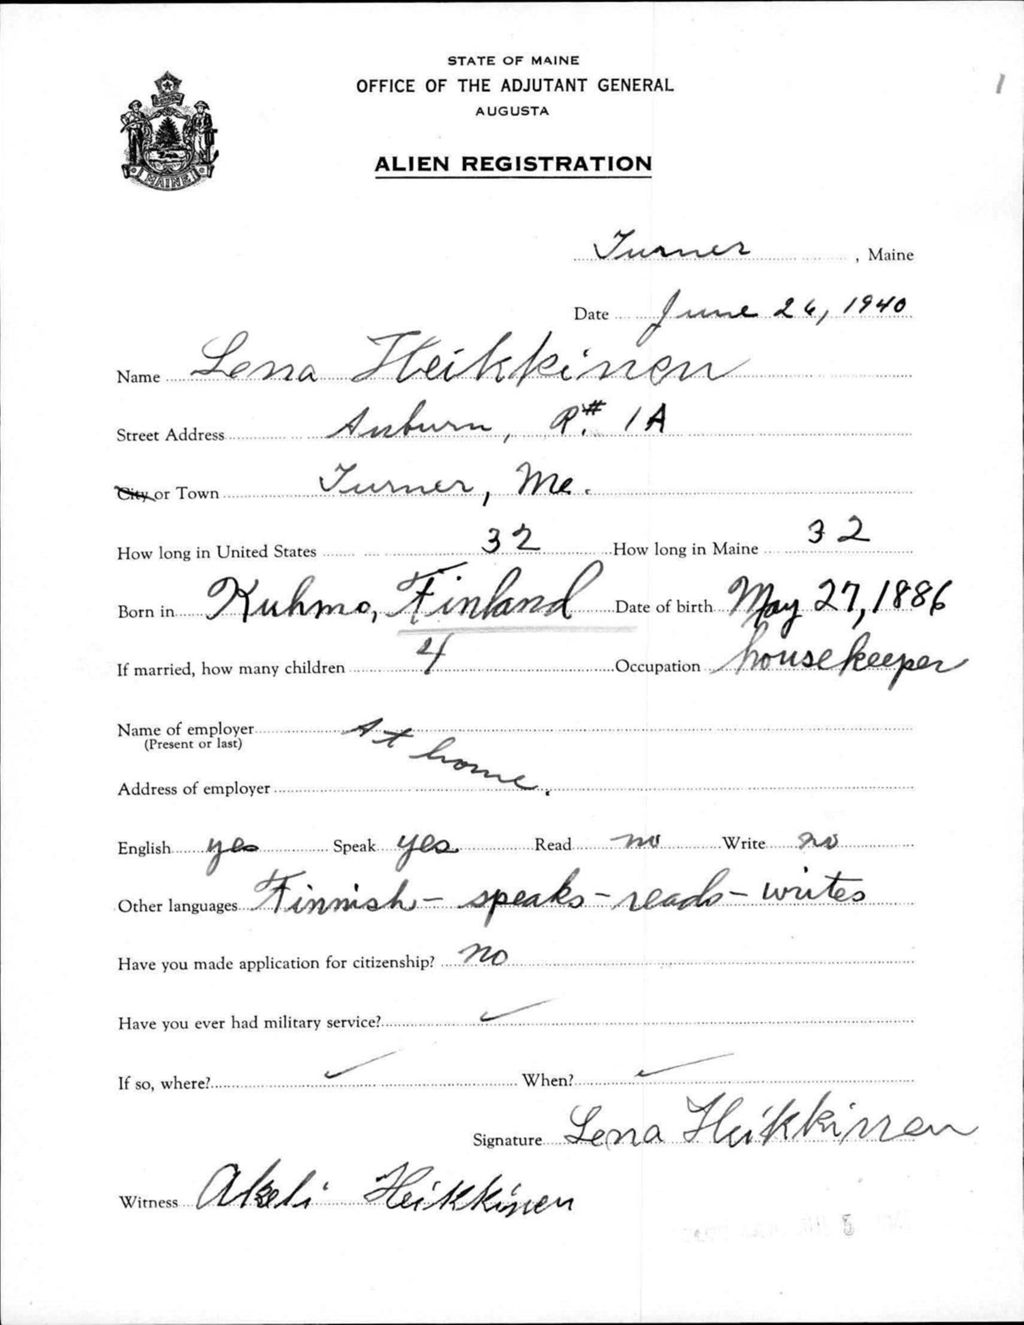 STATE OF MAINE
OFFICE OF THE ADJUTANT GENERAL
AUGUSTA
ALIEN REGISTRATION
1
MAINE
Turner, Maine
Date June 26, 1940
Name Lena Heikkinen
Street Address Auburn, R.# 1A
City or Town Turner, Me.
How long in United States 32 How long in Maine 32
Born in Kuhmo, Finland Date of birth May 27, 1886
If married, how many children 4 Occupation housekeeper
Name of employer At home.
(Present or last)
Address of employer
English yes Speak yes Read no Write no
Other languages Finnish - speaks - reads - writes
Have you made application for citizenship? no
Have you ever had military service? ✓
If so, where? ✓ When? ✓
Signature Lena Heikkinen
Witness Akeli Heikkinen